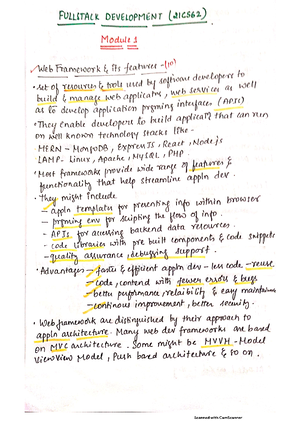 FULLSTACK DEVELOPMENT (21CS62)
Module 1
Web Framework & its features -(10)
• Set of resources & tools used by software developers to
build & manage web applicatns, web services as well
as to develop application prgming interfaces (APIs)
• They enable developers to build applicatn that can run
on well known technology stacks like -
MERN - MongoDB, ExpressJS, React, Nodejs
LAMP - Linux, Apache, MySQL, PHP
• Most frameworks provide wide range of features &
functionality that help streamline appln dev.
• They might include
- appln templates for presenting info within browser
- prgming env for scripting the flow of info.
- APIs for accessing backend data resources.
- code libraries with pre built components & code snippets
- quality assurance, debugging support.
• Advantages - faster & efficient appln dev - less code - reuse
- code, contend with fewer errors & bugs
- better performance, relaibility & easy maintainence
- continous improvement, better security.
• Web framework are distinguished by their approach to
appln architecture. Many web dev frameworks are based
on MVC architecture. Some might be MVVM - Model
View View Model, Push based architecture & so on.
Scanned with CamScanner